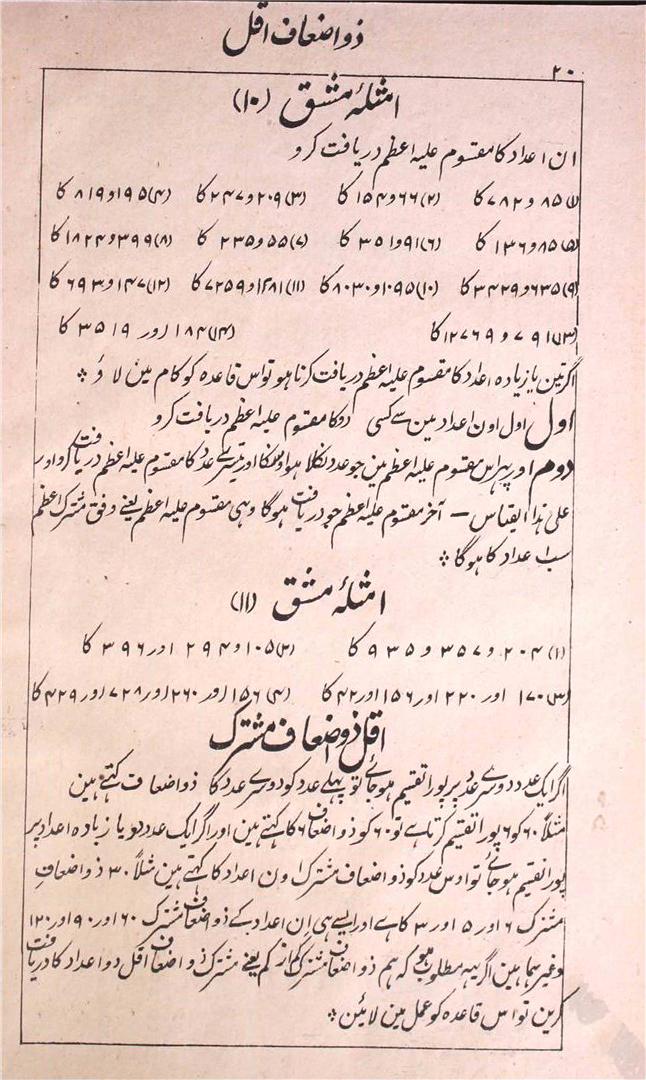 ذو اضعاف اقل
۲۰
امثلۂ مشق (۱۰)
ان اعداد کا مقسوم علیہ اعظم دریافت کرو
(۱) ۸۵ و ۷۸۲ کا (۲) ۶۶ و ۱۵۴ کا (۳) ۲۰۹ و ۲۴۷ کا (۴) ۱۹۵ و ۸۱۹ کا
(۵) ۸۵ و ۱۳۶ کا (۶) ۹۱ و ۳۵۱ کا (۷) ۵۵ و ۲۳۵ کا (۸) ۳۹۹ و ۱۸۲۴ کا
(۹) ۶۳۵ و ۳۴۲۹ کا (۱۰) ۱۰۹۵ و ۸۰۳۰ کا (۱۱) ۱۲۸۱ و ۷۲۵۹ کا (۱۲) ۱۴۷ و ۶۹۳ کا
(۱۳) ۷۹۱ و ۱۲۷۶۹ کا (۱۴) ۱۸۴ اور ۳۵۱۹ کا
اگر تین یا زیادہ اعداد کا مقسوم علیہ اعظم دریافت کرنا ہو تو اس قاعدہ کو کام مین لاؤ ⁘
اول اول اون اعداد مین سے کسی دو کا مقسوم علیہ اعظم دریافت کرو
دوم اور پہر اس مقسوم علیہ اعظم مین جو عدد نکلا ہو اوسکا اور تیسرے عدد کا مقسوم علیہ اعظم دریافت کرو اور
علی ہذا القیاس — آخر مقسوم علیہ اعظم جو دریافت ہوگا وہی مقسوم علیہ اعظم یعنے وفق مشترک اعظم
سب اعداد کا ہوگا ⁘
امثلۂ مشق (۱۱)
(۱) ۲۰۴ و ۳۵۷ و ۹۳۵ کا (۲) ۱۰۵ و ۲۹۴ اور ۳۹۶ کا
(۳) ۱۷۰ اور ۲۲۰ اور ۱۵۶ اور ۴۲ کا (۴) ۱۵۶ اور ۲۶۰ اور ۷۲۸ اور ۴۲۹ کا
اقل ذو اضعاف مشترک
اگر ایک عدد دوسرے عدد پر پورا تقسیم ہو جائے تو پہلے عدد کو دوسرے عدد کا ذو اضعاف کہتے ہین
مثلاً ۶۰ کو ۶ پورا تقسیم کرتا ہے تو ۶۰ کو ذو اضعاف ۶ کا کہتے ہین اور اگر ایک عدد دو یا زیادہ اعداد پر
پورا تقسیم ہو جائے تو اوس عدد کو ذو اضعاف مشترک اون اعداد کا کہتے ہین مثلاً ۳۰ ذو اضعاف
مشترک ۶ اور ۵ اور ۳ کا ہے اور ایسے ہی ان اعداد کے ذو اضعاف مشترک ۶۰ اور ۹۰ اور ۱۲۰
وغیرہما ہین اگر یہہ مطلوب ہو کہ ہم ذو اضعاف مشترک کم از کم یعنے مشترک ذو اضعاف اقل دو اعداد کا دریافت
کرین تو اس قاعدہ کو عمل مین لائین ⁘